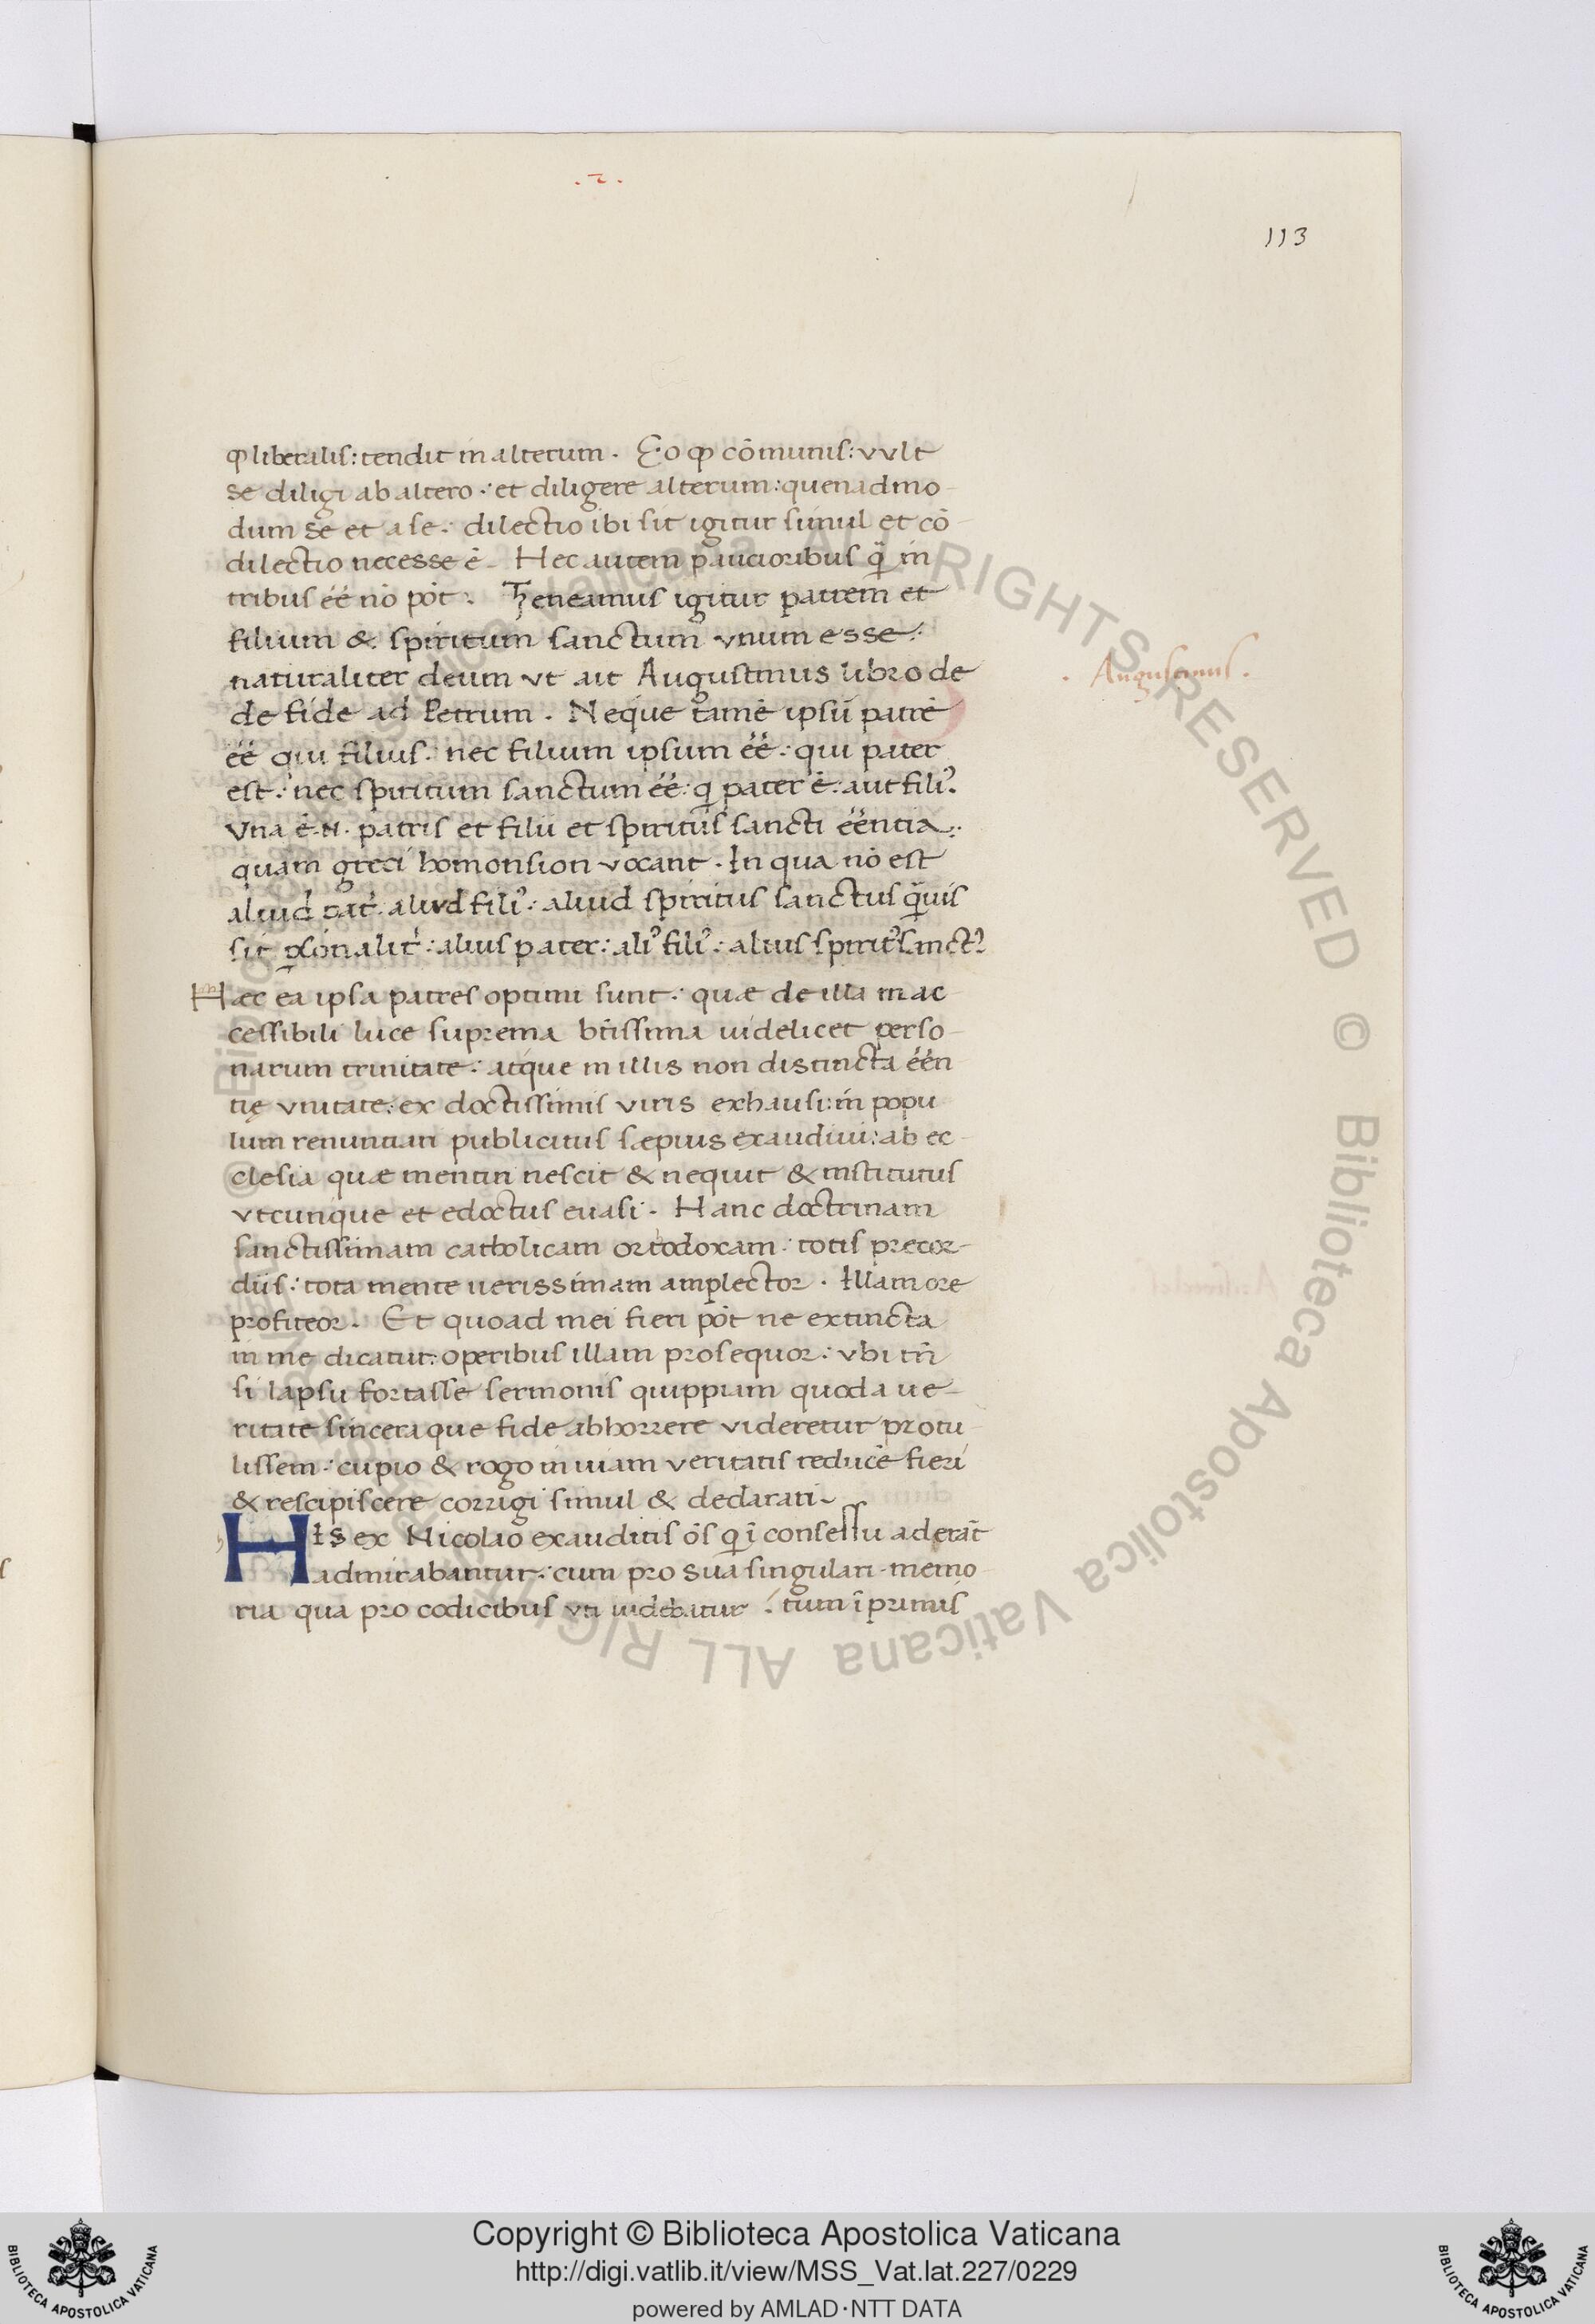 113
ꝙ liberalis: tendit in alterum. Eo ꝙ cōmunis: vvlt
se diligi ab altero: et diligere alterum: quenadmo-
dum se et a se: dilectio ibi sit igitur simul et cō-
dilectio necesse ē. Hec autem paucioribus q̄ in
tribus éé nō pōt. Teneamus igitur patrem et
filium &. spiritum sanctum vnum esse:
naturaliter deum vt ait Augustinus libro de
. Augustinus .
de fide ad Petrum. Neque tamē ipsū patrē
éé qui filius. nec filium ipsum éé: qui pater
est: nec spiritum sanctum éé: q pater ē: aut filiꝰ.
Vna ē.N. patris et filii et spiritus sancti éentia:
quam greci homonsion vocant. In qua nō est
aliud pat̄. aliud filiꝰ: aliud spiritus sanctus q̄uis
sit ꝑsonalit̄: alius pater: aliꝰ filiꝰ: alius spiritꝰ sanctꝰ
Hæc ea ipsa patres optimi sunt: quæ de illa inac-
cessibili luce suprema bt̄issima uidelicet perso-
narum trinitate: atque in illis non distincta éen
tię vnitate: ex doctissimis viris exhausi: in popu
lum renuntiari publicitus sæpius exaudiui: ab ec-
clesia quæ mentiri nescit & nequit & institutus
vtcunque et edoctus euasi. Hanc doctrinam
sanctissimam catholicam ortodoxam: totis precor-
diis: tota mente uerissimam amplector. Illam ore
profiteor. Et quoad mei fieri pōt ne extincta
in me dicatur: operibus illam prosequor: vbi tn̄
si lapsu fortasse sermonis quippiam quod a ue-
ritate sinceraque fide abhorrere videretur protu
lissem: cupio & rogo in uiam veritatis reducē fieri
& rescipiscere corrigi simul & declarari.
HIS ex Nicolao exauditis ōs q ī consessu aderāt
admirabantur: cum pro sua singulari memo-
ria qua pro codicibus vti uidebatur: tum ī primis
Copyright © Biblioteca Apostolica Vaticana
http://digi.vatlib.it/view/MSS_Vat.lat.227/0229
powered by AMLAD·NTT DATA